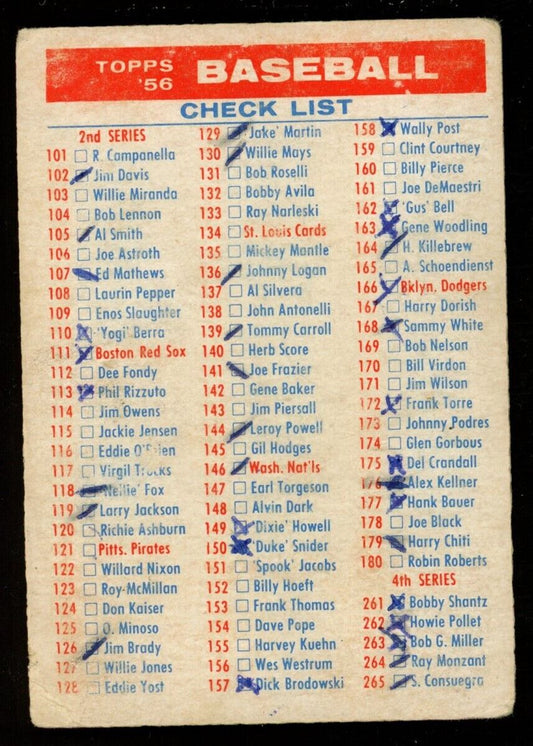 TOPPS '56 BASEBALL
CHECK LIST
2nd SERIES
101 R. Campanella
102 Jim Davis
103 Willie Miranda
104 Bob Lennon
105 Al Smith
106 Joe Astroth
107 Ed Mathews
108 Laurin Pepper
109 Enos Slaughter
110 'Yogi' Berra
111 Boston Red Sox
112 Dee Fondy
113 Phil Rizzuto
114 Jim Owens
115 Jackie Jensen
116 Eddie O'Brien
117 Virgil Trucks
118 'Nellie' Fox
119 Larry Jackson
120 Richie Ashburn
121 Pitts. Pirates
122 Willard Nixon
123 Roy McMillan
124 Don Kaiser
125 O. Minoso
126 Jim Brady
127 Willie Jones
128 Eddie Yost
129 'Jake' Martin
130 Willie Mays
131 Bob Roselli
132 Bobby Avila
133 Ray Narleski
134 St. Louis Cards
135 Mickey Mantle
136 Johnny Logan
137 Al Silvera
138 John Antonelli
139 Tommy Carroll
140 Herb Score
141 Joe Frazier
142 Gene Baker
143 Jim Piersall
144 Leroy Powell
145 Gil Hodges
146 Wash. Nat'ls
147 Earl Torgeson
148 Alvin Dark
149 'Dixie' Howell
150 'Duke' Snider
151 'Spook' Jacobs
152 Billy Hoeft
153 Frank Thomas
154 Dave Pope
155 Harvey Kuehn
156 Wes Westrum
157 Dick Brodowski
158 Wally Post
159 Clint Courtney
160 Billy Pierce
161 Joe DeMaestri
162 'Gus' Bell
163 Gene Woodling
164 H. Killebrew
165 A. Schoendienst
166 Bklyn. Dodgers
167 Harry Dorish
168 Sammy White
169 Bob Nelson
170 Bill Virdon
171 Jim Wilson
172 Frank Torre
173 Johnny Podres
174 Glen Gorbous
175 Del Crandall
176 Alex Kellner
177 Hank Bauer
178 Joe Black
179 Harry Chiti
180 Robin Roberts
4th SERIES
261 Bobby Shantz
262 Howie Pollet
263 Bob G. Miller
264 Ray Monzant
265 S. Consuegra